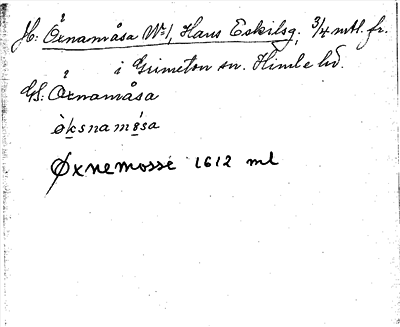 Jb: Öxnamåsa No 1, Hans Eskilsg. 3/4 mtl. fr.
i Grimeton sn. Himle hd.
GS: Öxnamåsa
òksnamɷ́sa
Øxnemosse 1612 ml